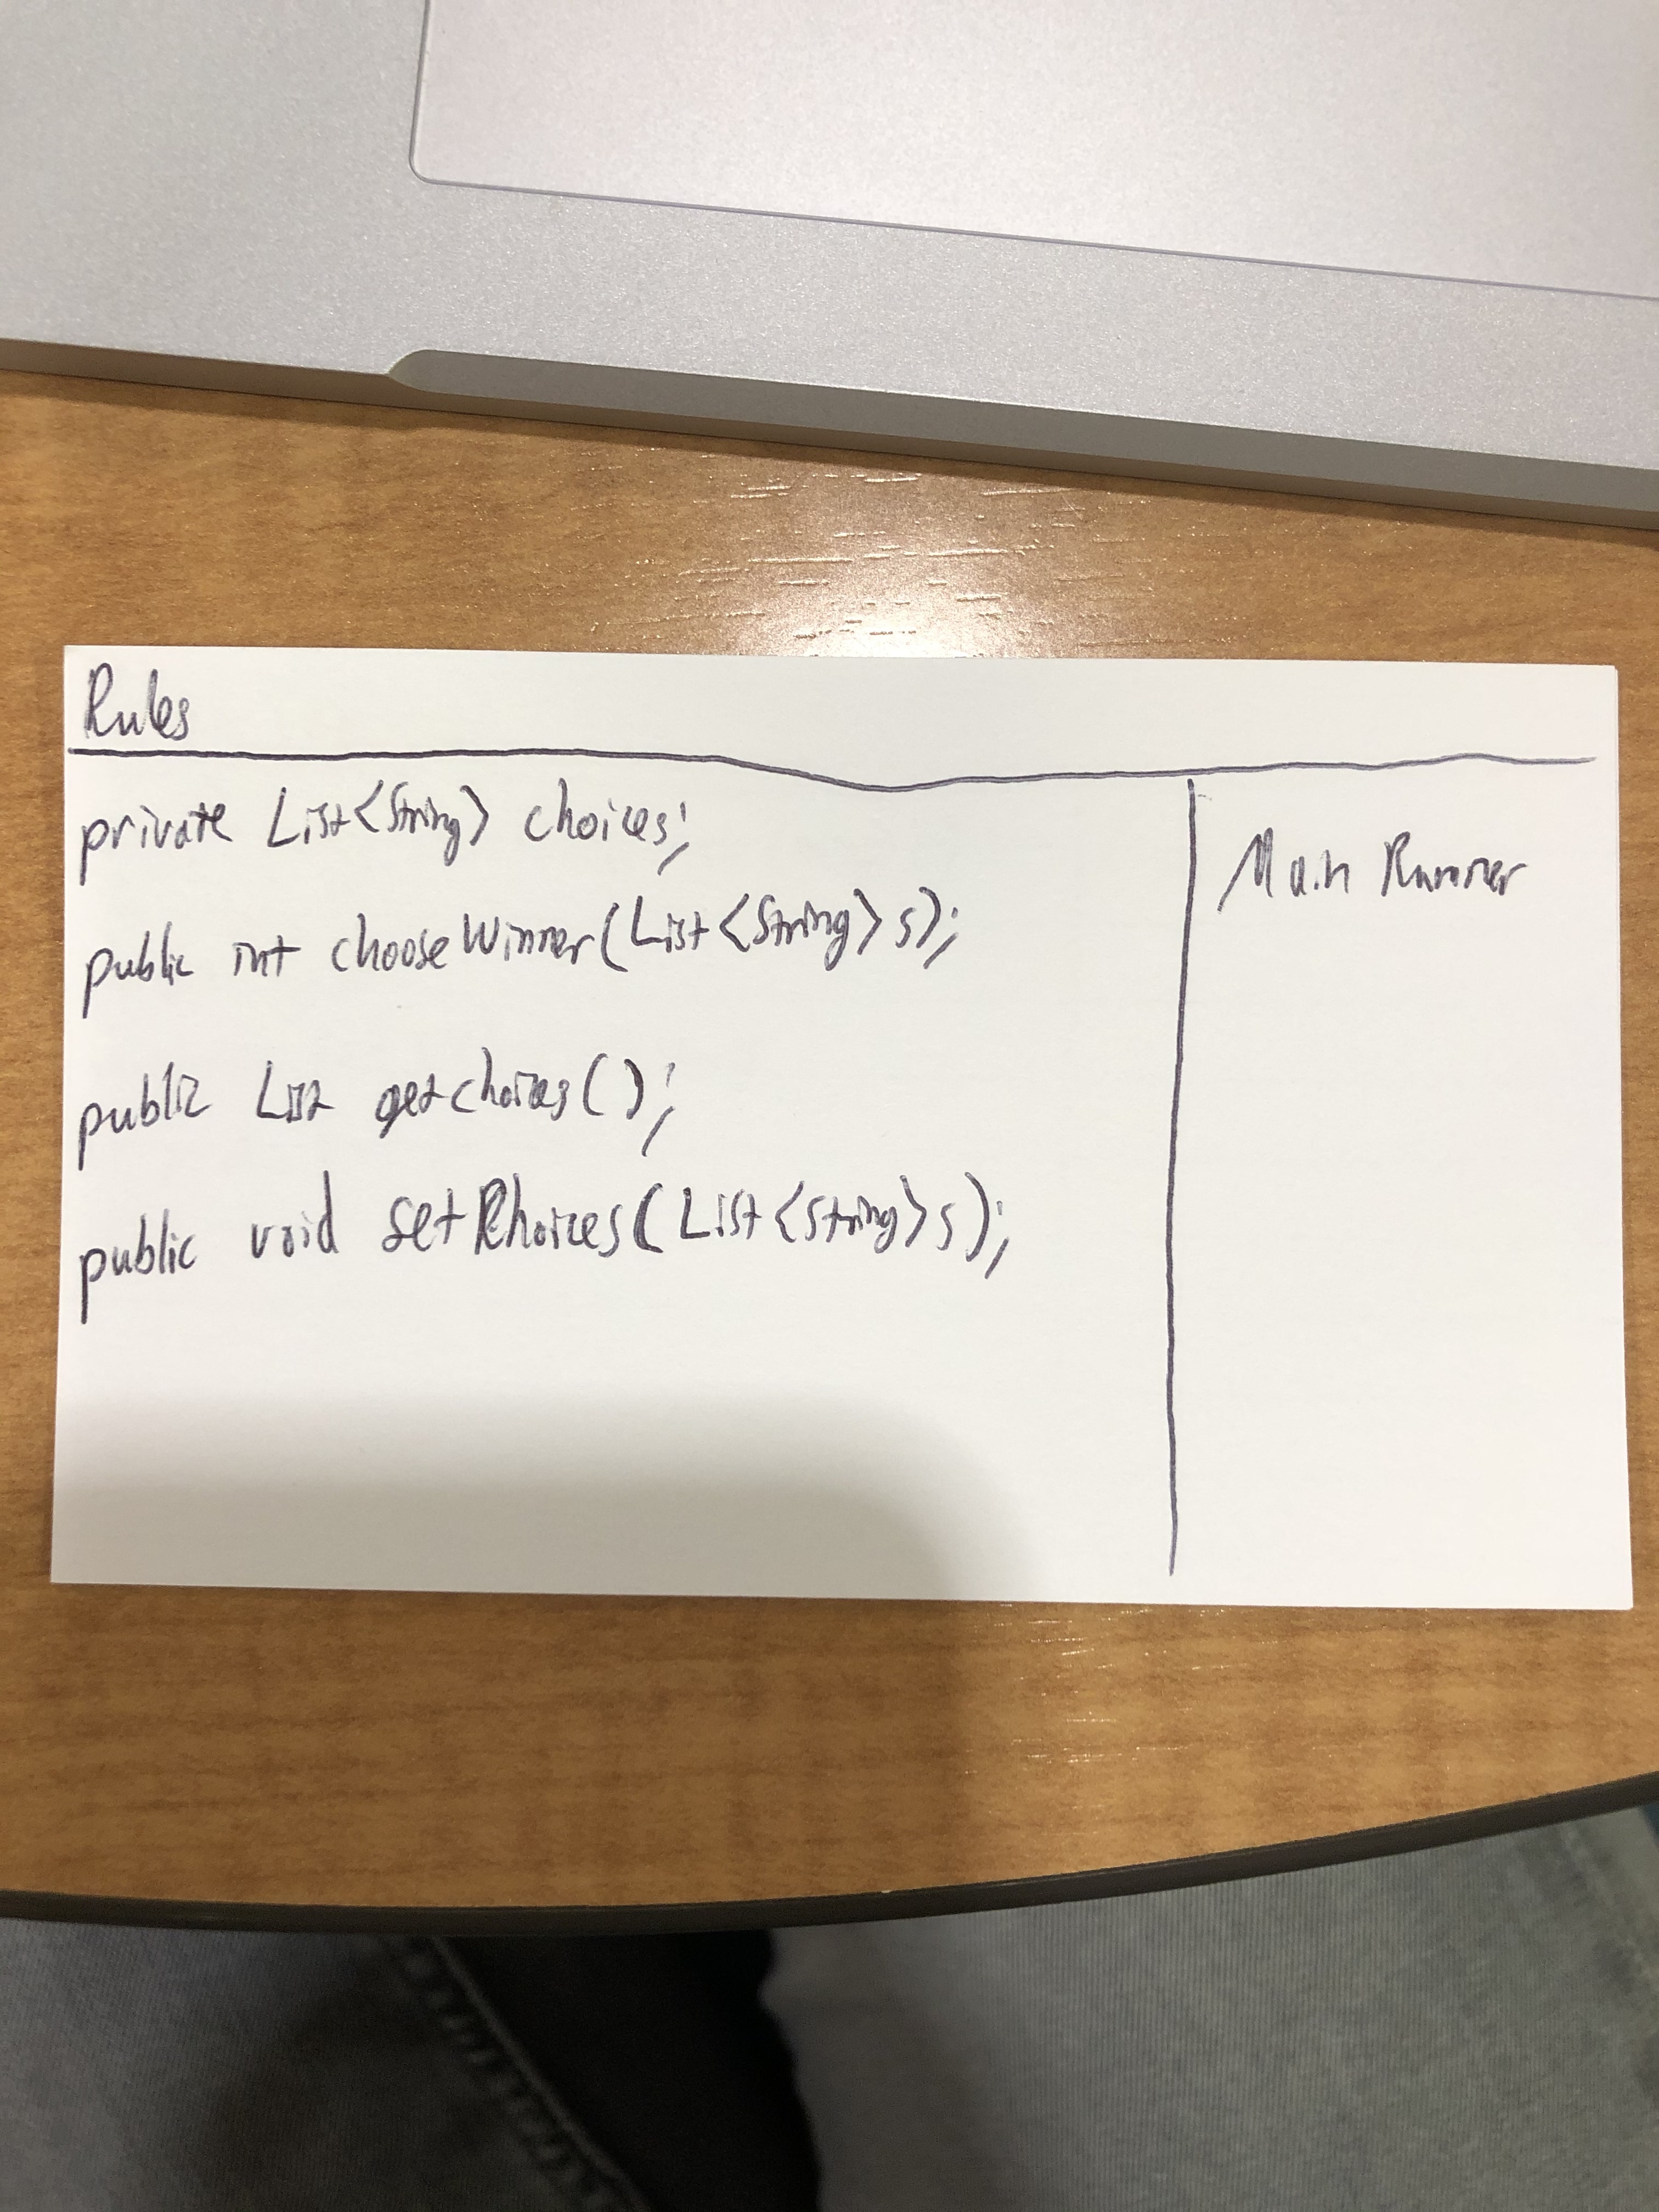 Rules
private List<String> choices;
public int chooseWinner(List<String> s);
public List getchoices();
public void setChoices(List<String> s);
Main Runner